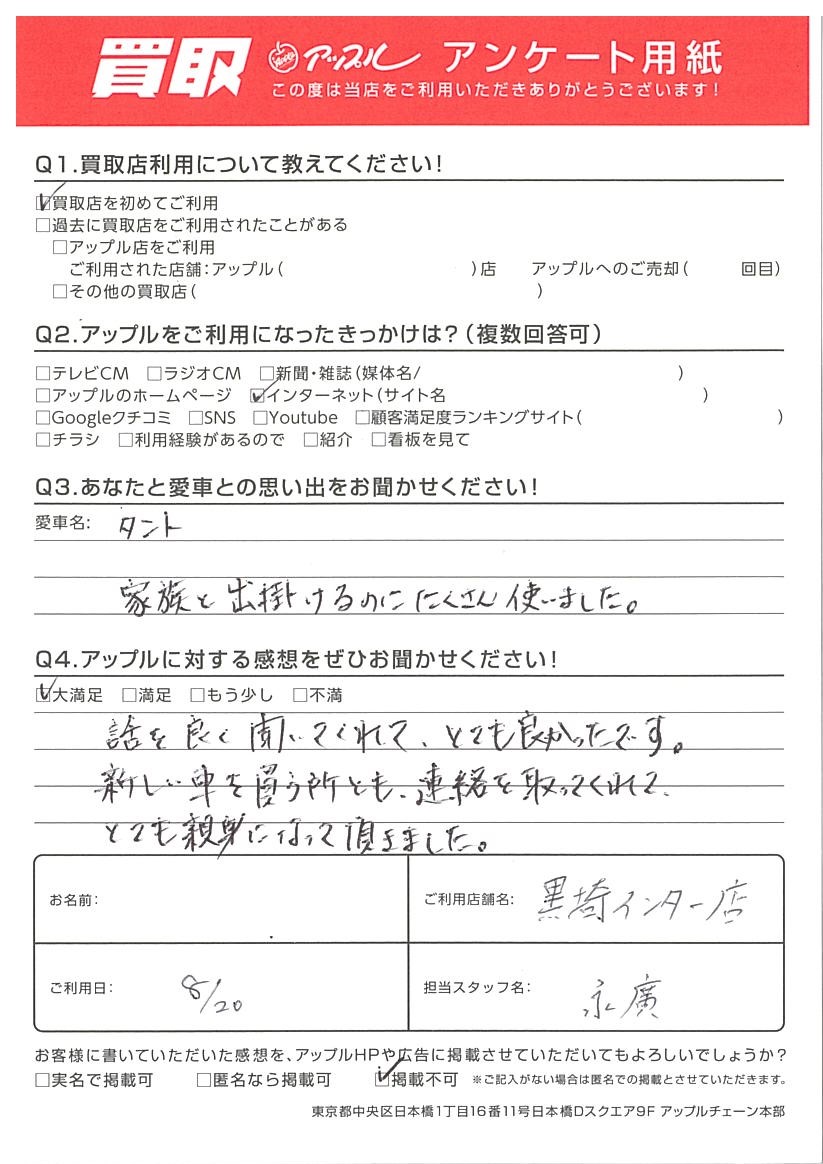 買取 アップル アンケート用紙
この度は当店をご利用いただきありがとうございます!
Q1.買取店利用について教えてください!
☑買取店を初めてご利用
□過去に買取店をご利用されたことがある
□アップル店をご利用
ご利用された店舗:アップル( )店 アップルへのご売却( 回目)
□その他の買取店( )
Q2.アップルをご利用になったきっかけは?(複数回答可)
□テレビCM □ラジオCM □新聞・雑誌(媒体名/ )
□アップルのホームページ ☑インターネット(サイト名 )
□Googleクチコミ □SNS □Youtube □顧客満足度ランキングサイト( )
□チラシ □利用経験があるので □紹介 □看板を見て
Q3.あなたと愛車との思い出をお聞かせください!
愛車名: タント
家族と出掛けるのにたくさん使いました。
Q4.アップルに対する感想をぜひお聞かせください!
☑大満足 □満足 □もう少し □不満
話を良く聞いてくれて、とても良かったです。
新しい車を買う所とも、連絡を取ってくれて、
とても親身になって頂きました。
お名前: ご利用店舗名: 黒埼インター店
ご利用日: 8/20 担当スタッフ名: 永廣
お客様に書いていただいた感想を、アップルHPや広告に掲載させていただいてもよろしいでしょうか?
□実名で掲載可 □匿名なら掲載可 ☑掲載不可 ※ご記入がない場合は匿名での掲載とさせていただきます。
東京都中央区日本橋1丁目16番11号日本橋Dスクエア9F アップルチェーン本部